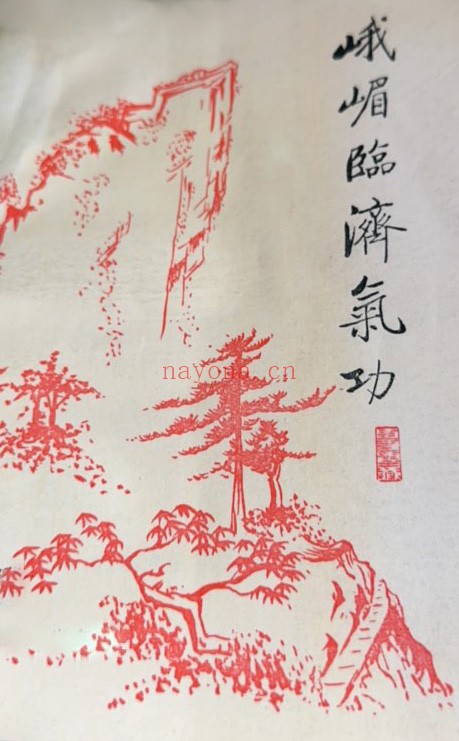 峨嵋臨濟氣功
nayona.cn